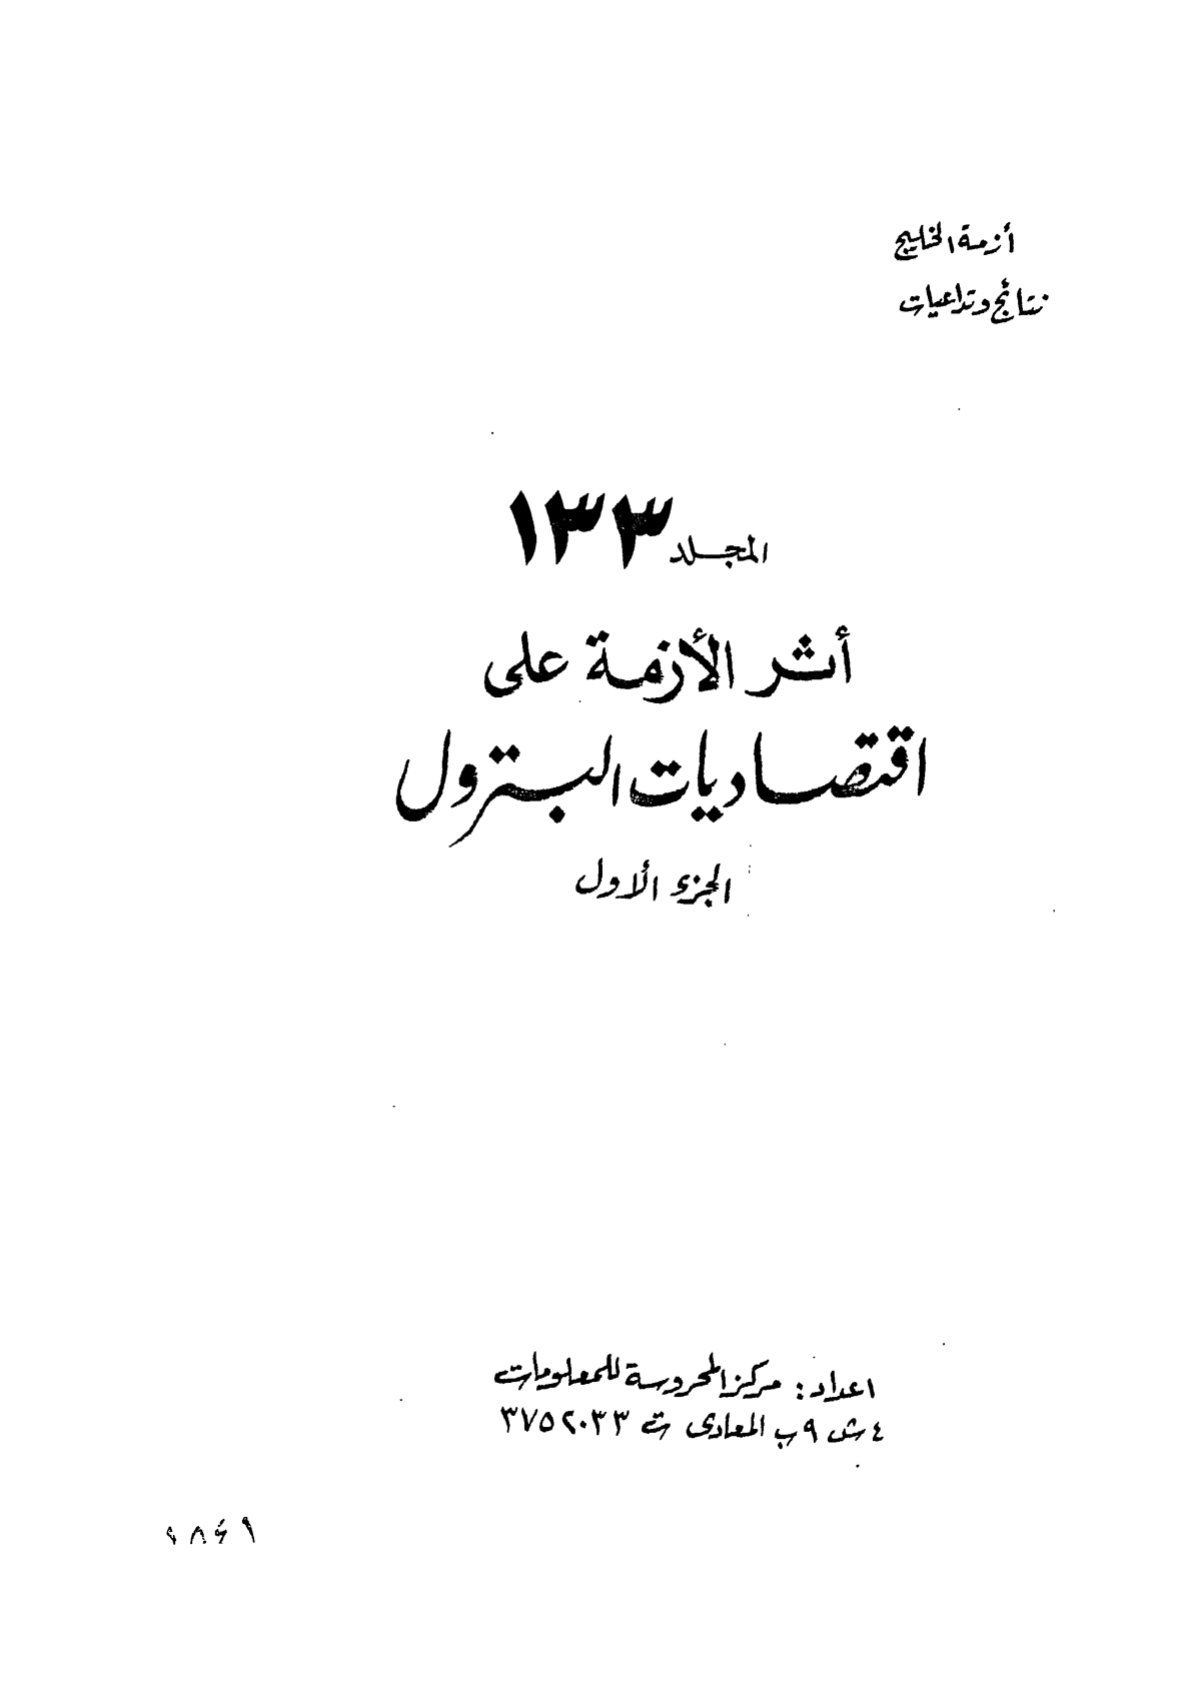 أزمة الخليج
نتائج وتداعيات
المجلد ١٣٣
أثر الأزمة على
اقتصاديات البترول
الجزء الأول
اعداد: مركز المحروسة للمعلومات
٤ ش ٩ب المعادى ت ٣٧٥٢٠٣٣